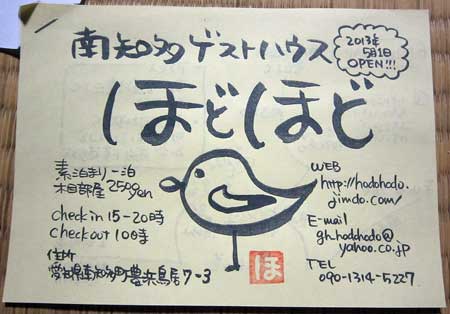 南知多ゲストハウス
2013年
5月1日
OPEN!!!
ほどほど
素泊まり一泊
相部屋 2500yen
check in 15-20時
check out 10時
住所
愛知県南知多町豊浜鳥居7-3
WEB
http://hodohodo.
jimdo.com/
E-mail
gh.hodohodo@
yahoo.co.jp
TEL
090-1314-5227
ほ